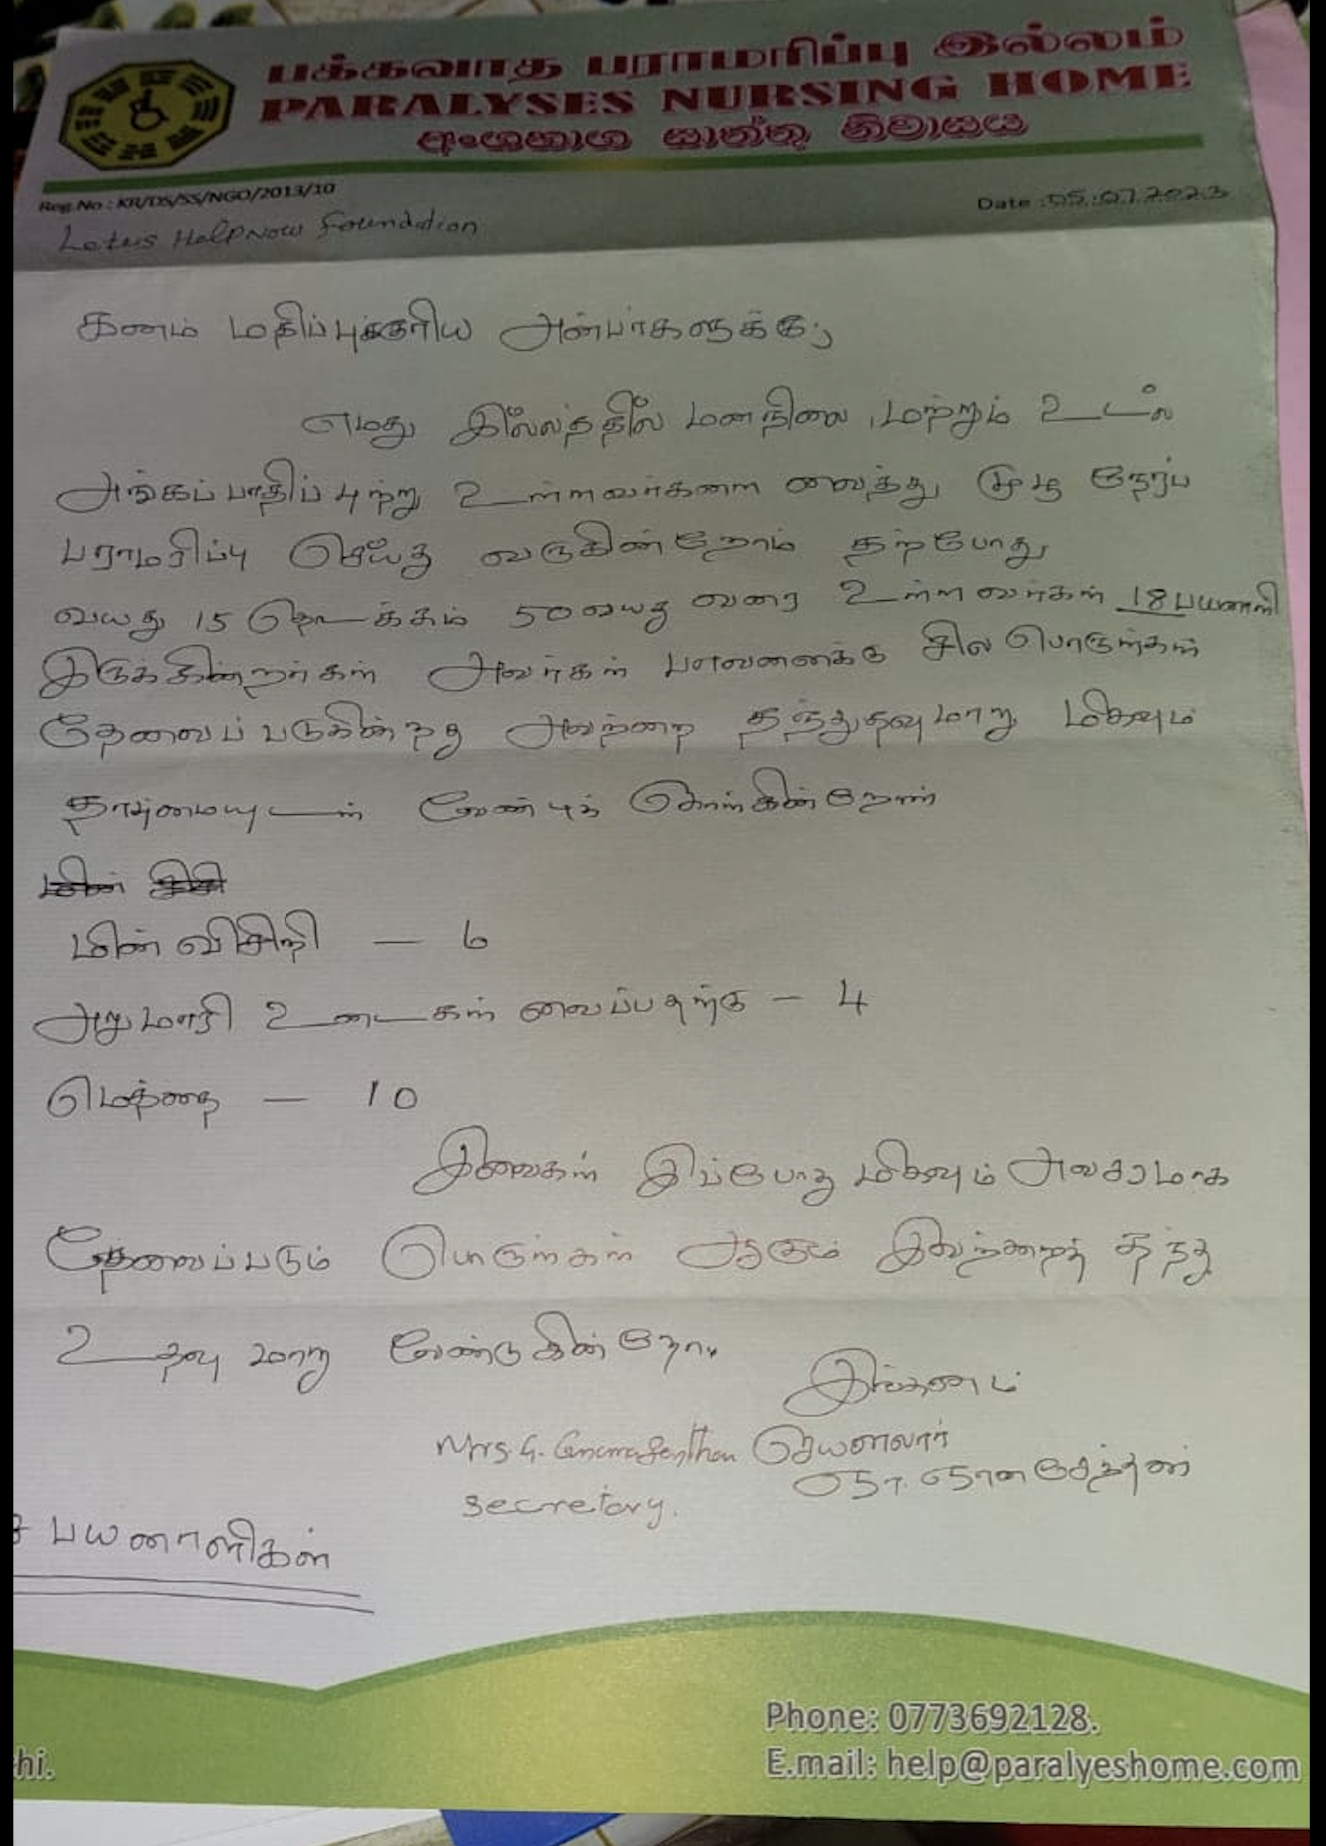 பக்கவாத பராமரிப்பு இல்லம்
PARALYSES NURSING HOME
අංශභාග සාත්තු නිවාසය
Reg.No : KR/DS/SS/NGO/2013/10
Date : 05.07.2023
Lotus HelpNow Foundation
கனம் மதிப்புக்குரிய அன்பர்களுக்கு,
எமது இல்லத்தில் மனநிலை, மற்றும் உடல்
அங்கப்பாதிப்புற்று உள்ளவர்களை வைத்து முழு நேரப்
பராமரிப்பு செய்து வருகின்றோம் தற்போது
வயது 15 தொடக்கம் 50 வயது வரை உள்ளவர்கள் 18 பயனாளி
இருக்கின்றார்கள் அவர்கள் பாவனைக்கு சில பொருள்கள்
தேவைப்படுகின்றது அவற்றை தந்துதவுமாறு மிகவும்
தாழ்மையுடன் வேண்டிக் கொள்கின்றேன்
மின் விசிறி - 6
அலுமாரி உடைகள் வைப்பதற்கு - 4
மெத்தை - 10
இவைகள் இப்போது மிகவும் அவசரமாக
தேவைப்படும் பொருள்கள் ஆகும் இவற்றைத் தந்து
உதவு மாறு வேண்டுகின்றோம்
இங்கனம்
Mrs. G. செயலாளர்
Secretary.
பயனாளிகள்
Phone: 0773692128.
hi.
E.mail: help@paralyeshome.com